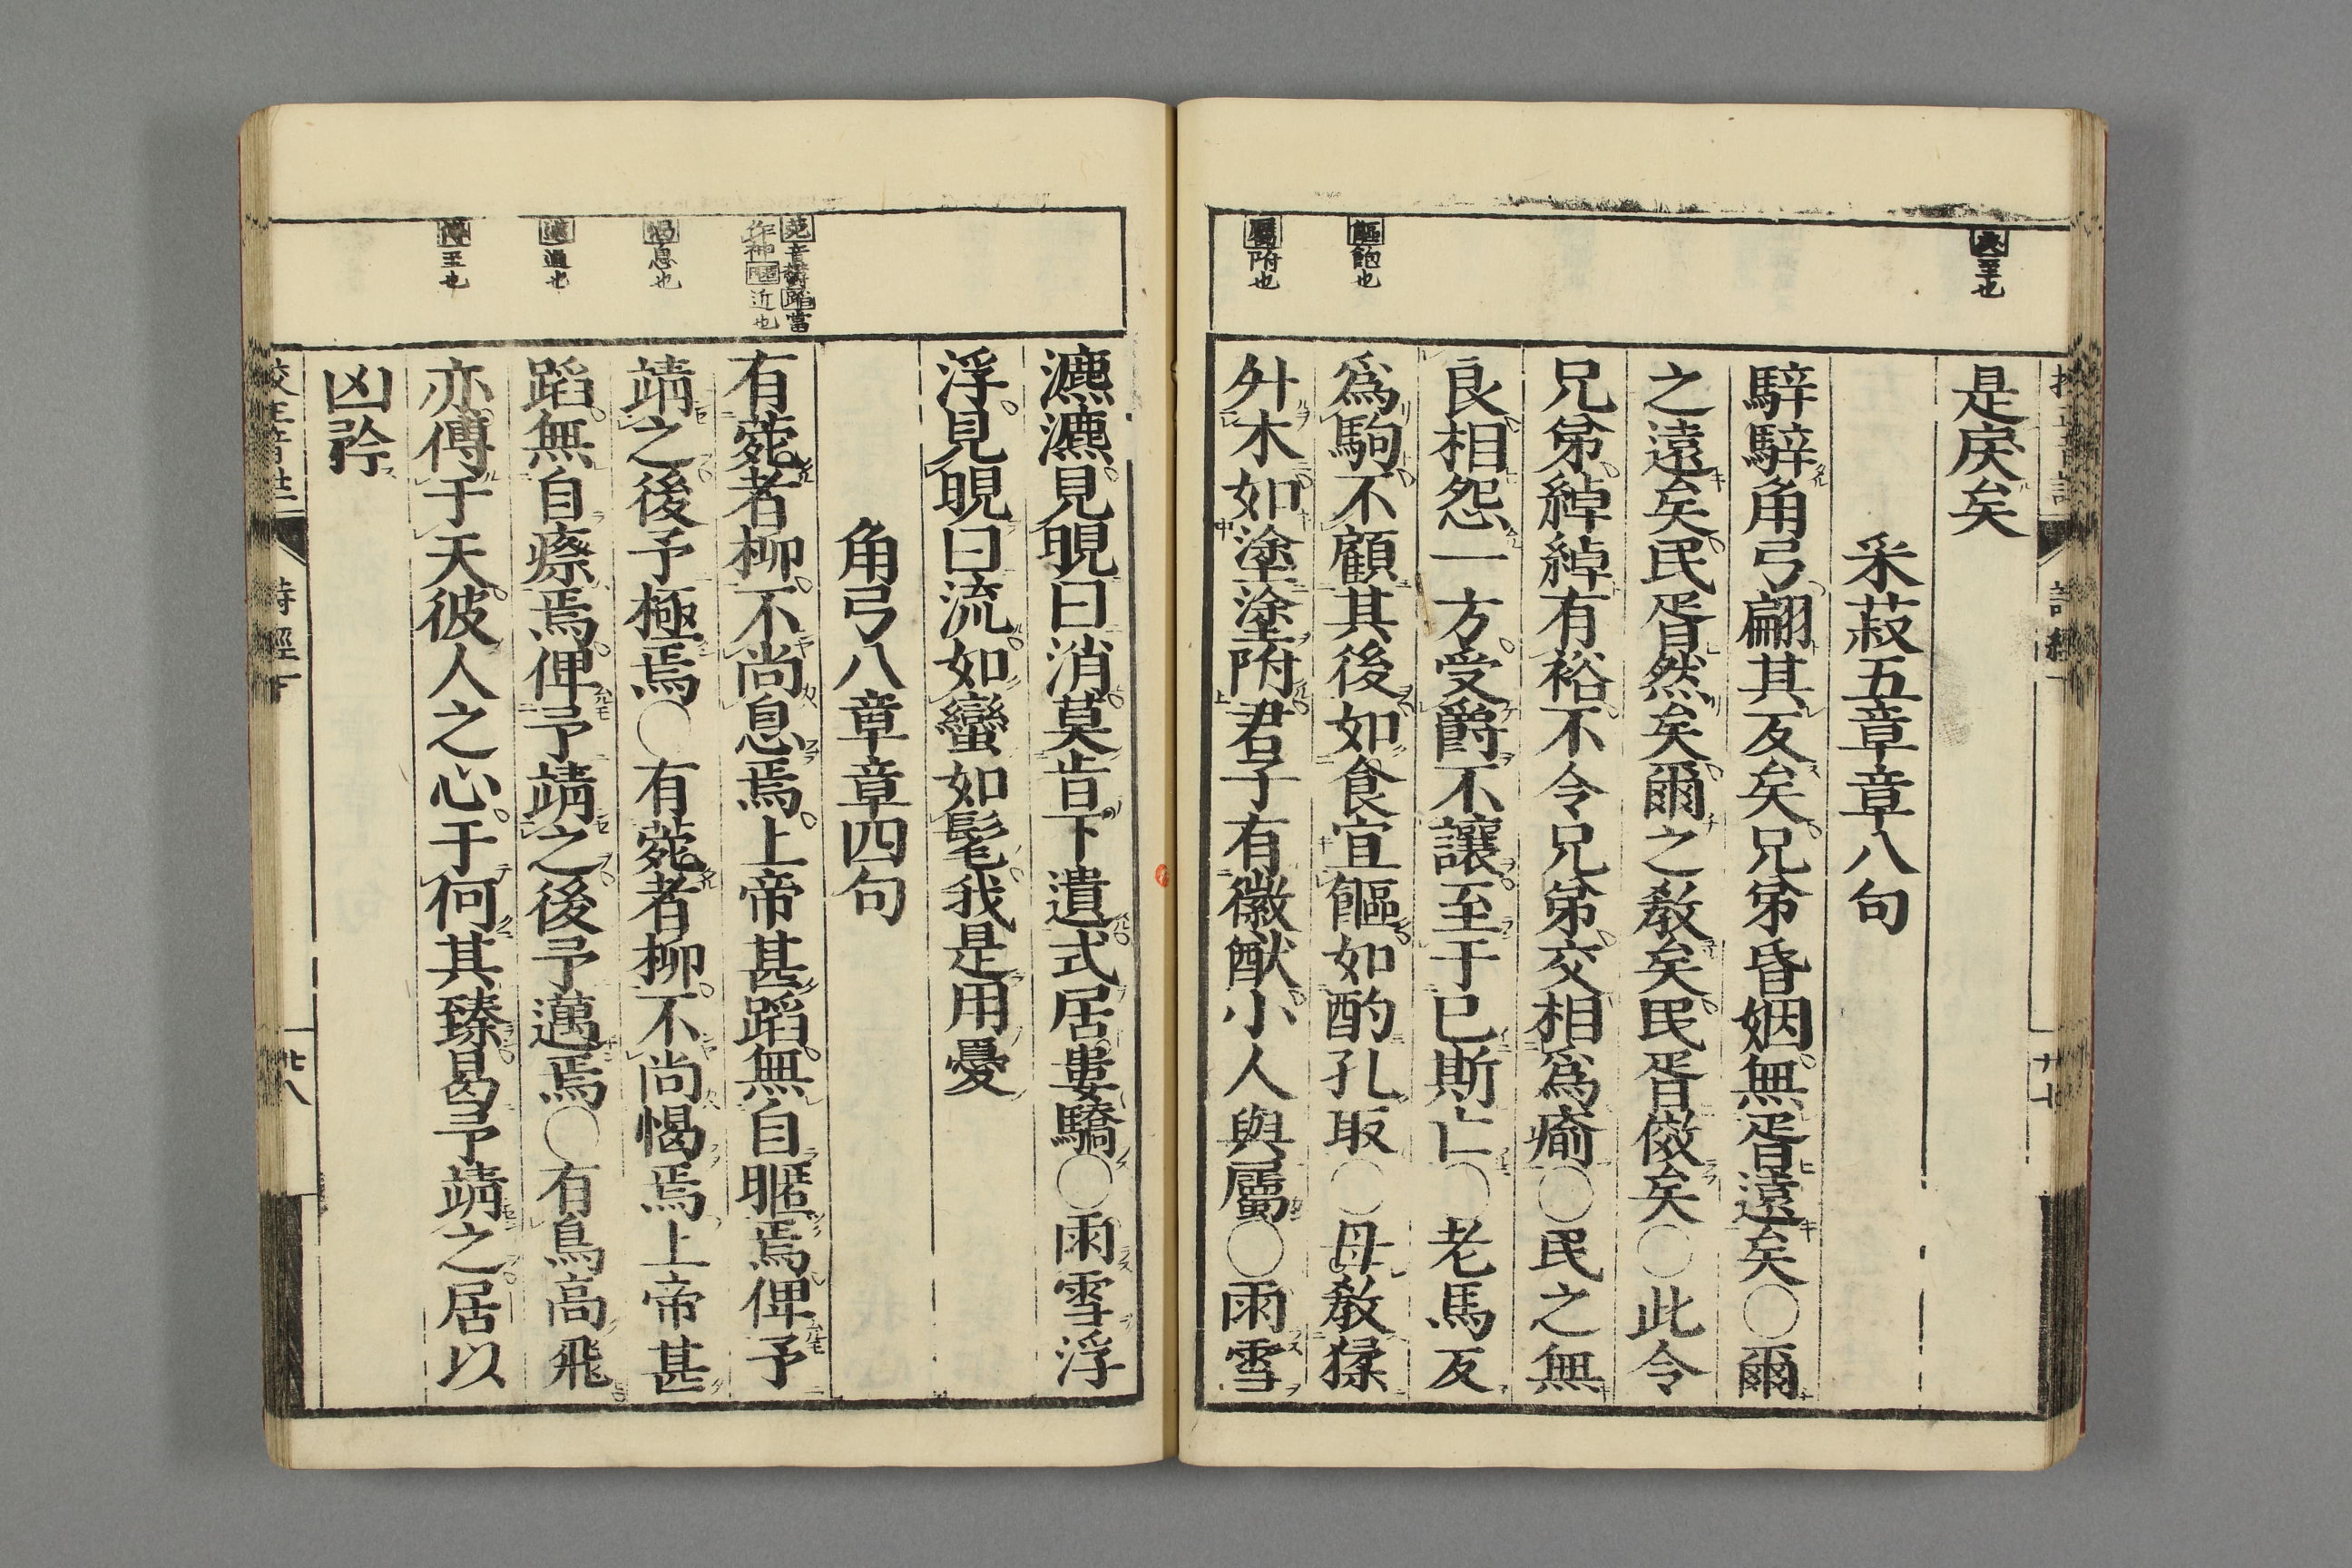 戾至也
饇飽也
屬附也
是戾矣
采菽五章章八句
騂騂角弓翩其反矣兄弟昏姻無胥遠矣〇爾
之遠矣民胥然矣爾之敎矣民胥傚矣〇此令
兄弟綽綽有裕不令兄弟交相爲瘉〇民之無
良相怨一方受爵不讓至于已斯亡〇老馬反
爲駒不顧其後如食宜饇如酌孔取〇毋敎猱
升木如塗塗附君子有徽猷小人與屬〇雨雪
十七
菀音鬱蹈當
作神暱近也
愒息也
邁過也
傅至也
瀌瀌見晛曰消莫肯下遺式居婁驕〇雨雪浮
浮見晛曰流如蠻如髦我是用憂
角弓八章章四句
有菀者柳不尚息焉上帝甚蹈無自暱焉俾予
靖之後予極焉〇有菀者柳不尚愒焉上帝甚
蹈無自瘵焉俾予靖之後予邁焉〇有鳥高飛
亦傅于天彼人之心于何其臻曷予靖之居以
凶矜
校正音註
詩經下
廿八